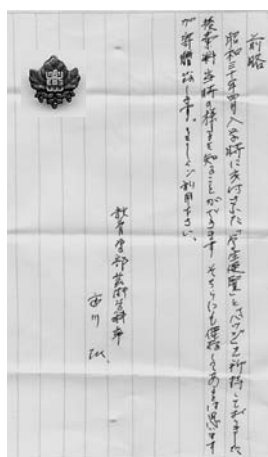 前略
昭和三十年四月入学時に交付された「学生便覧」とバッジを所持しておりました
授業料当時の様子を知ることができます そちらにも保存してあるとは思いますが
が寄贈致します。よろしくご利用下さい。
教育学部芸術学科卒
市川